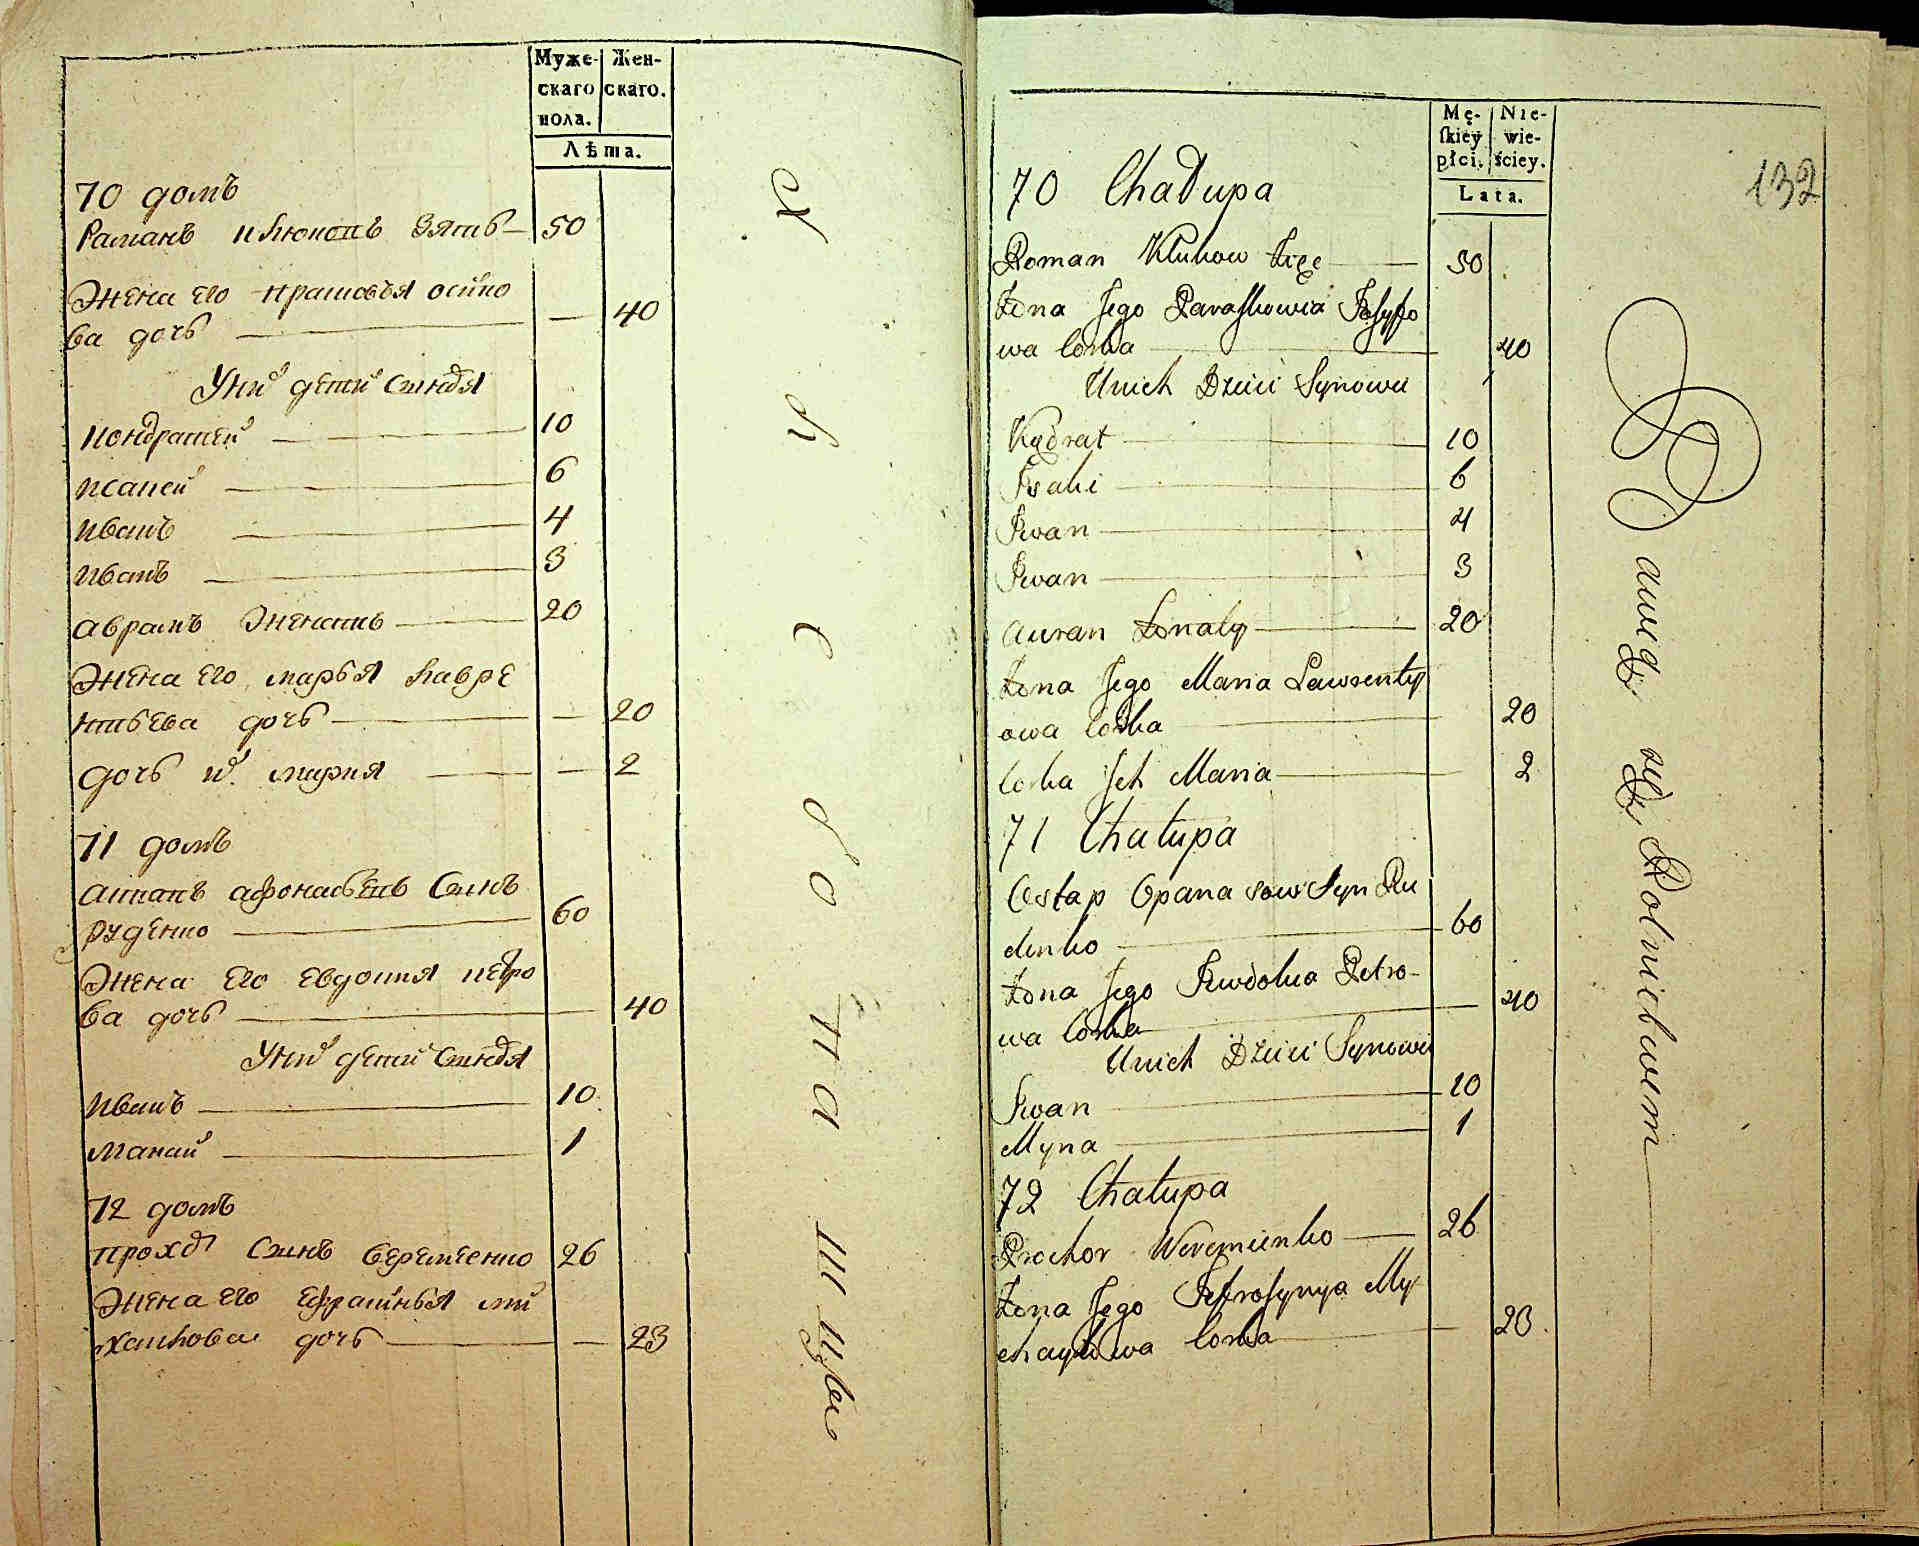 Муже- Жен-
скаго скаго.
пола.
Лѣта.
70 домъ
Раманъ клюковъ Зять 50
Жена его прасковья осипо
ва дочь 40
У них дети Синовья
кондратей 10
исакей 6
иванъ 4
иванъ 3
аврамъ женатъ 20
Жена его марья лавре
нтьева дочь 20
дочь их мария 2
71 домъ
астапъ афонасьевъ Синъ
руденко 60
Жена его евдокия петро
ва дочь 40
У них дети Синовья
иванъ 10
Манай 1
72 домъ
прохор Синъ веремеенко 26
Жена его ефросинья ми
хайлова дочь 23
Mę- Nie-
ſkiey wie-
płci. ściey.
Lata.
132
70 Chałupa
Roman Klukow Zięć 50
Żona Jego Paraskowia Josypo
wa Corka 40
Unich Dzieci Synowie
Kądrat 10
Isaki 6
Iwan 4
Iwan 3
Auram Żonaty 20
Żona Jego Maria Lawrenty
owa Corka 20
Corka Ich Maria 2
71 Chałupa
Ostap Opanasow Syn Ru
denko 60
Żona Jego Iwdokia Petro-
wa Corka 40
Unich Dzieci Synowie
Iwan 10
Myna 1
72 Chałupa
Prochor Weremienko 26
Żona Jego Jefrosynya My
chayłowa Corka 23
Rolnictwem